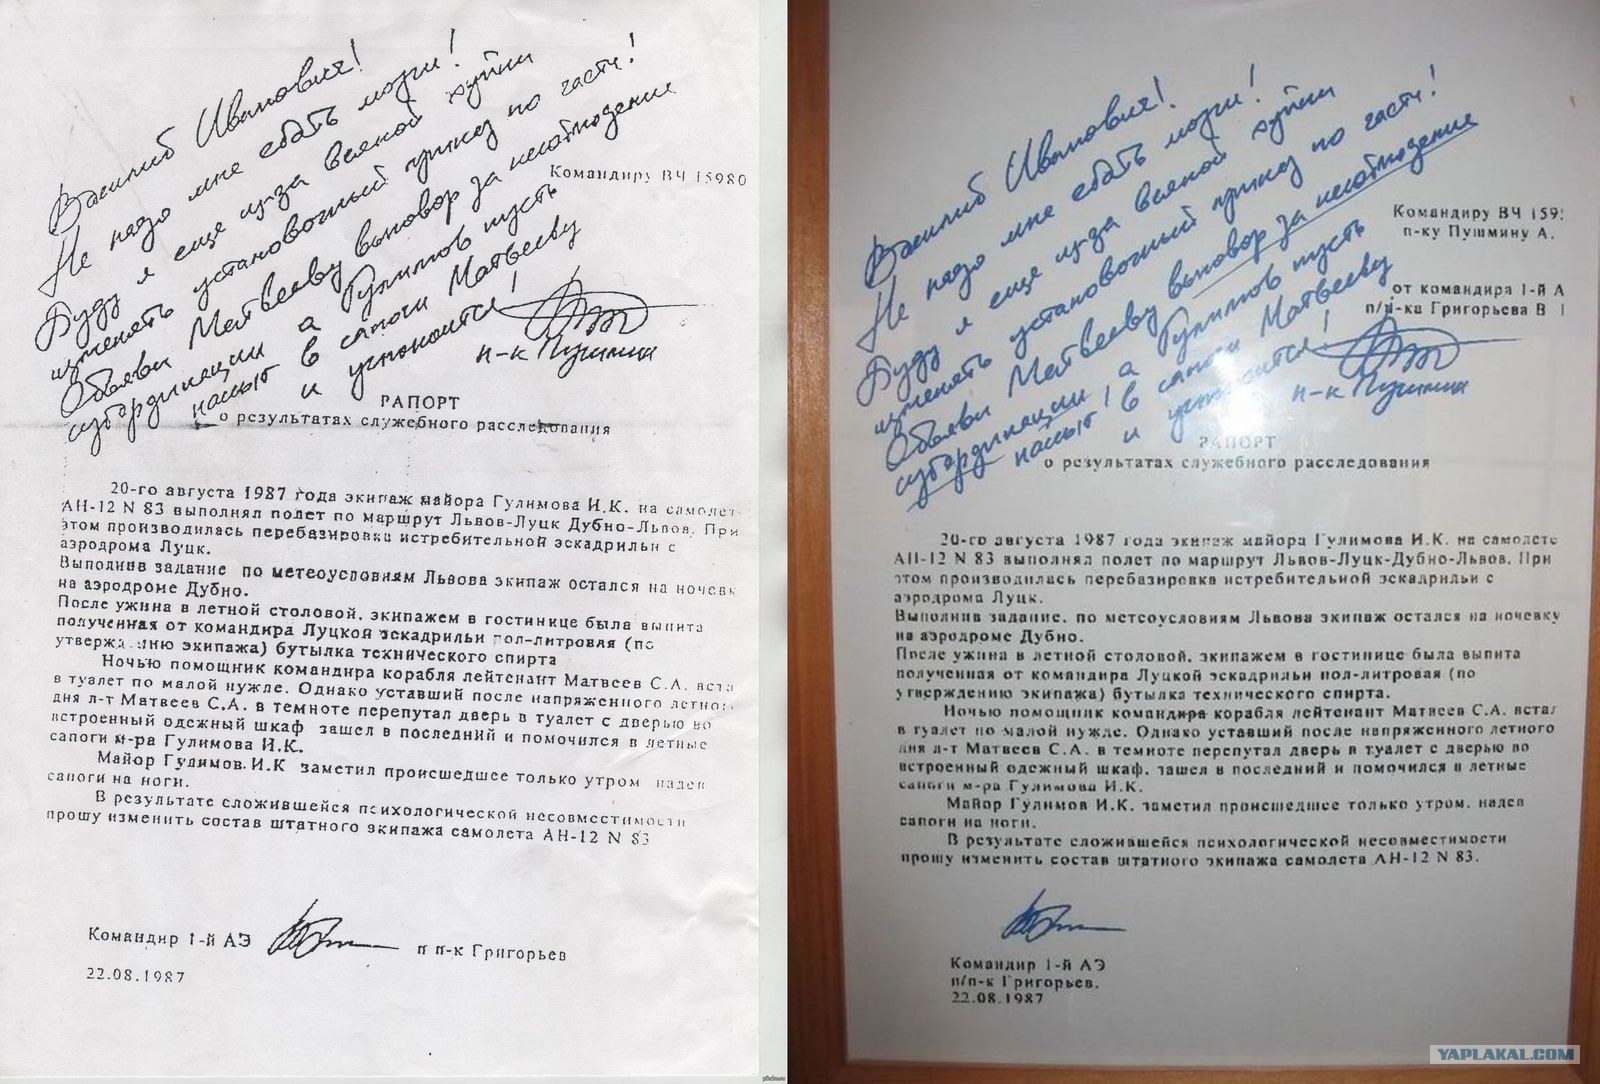 Василий Иванович!
Не надо мне ебать мозги!
Буду я еще из-за всякой хуйни
изменять установочный приказ по части!
Объяви Матвееву выговор за несоблюдение
субординации а Гулимов пусть
нассыт в сапоги Матвееву
и успокоится!
п-к Пушмин
Командиру ВЧ 15980
РАПОРТ
о результатах служебного расследования
20-го августа 1987 года экипаж майора Гулимова И.К. на самолет
АН-12 N 83 выполнял полет по маршрут Львов-Луцк Дубно-Львов. При
этом производилась перебазировка истребительной эскадрильи с
аэродрома Луцк.
Выполнив задание по метеоусловиям Львова экипаж остался на ночевк
на аэродроме Дубно.
После ужина в летной столовой, экипажем в гостинице была выпита
полученная от командира Луцкой эскадрильи пол-литровая (по
утвержд нию экипажа) бутылка технического спирта
Ночью помощник командира корабля лейтенант Матвеев С.А. вста
в туалет по малой нужде. Однако уставший после напряженного летног
дня л-т Матвеев С.А. в темноте перепутал дверь в туалет с дверью во
встроенный одежный шкаф зашел в последний и помочился в летные
сапоги м-ра Гулимова И.К.
Майор Гулимов И.К заметил происшедшее только утром надев
сапоги на ноги.
В результате сложившейся психологической несовместимости
прошу изменить состав штатного экипажа самолета АН-12 N 83
Командир 1-й АЭ п п-к Григорьев
22.08.1987
Василий Иванович!
Не надо мне ебать мозги!
Буду я еще из-за всякой хуйни
изменять установочный приказ по части!
Объяви Матвееву выговор за несоблюдение
субординации, а Гулимов пусть
нассыт в сапоги Матвееву
и успокоится!
п-к Пушмин
Командиру ВЧ 159
п-ку Пушмину А.
от командира 1-й А
п/п-ка Григорьева В
РАПОРТ
о результатах служебного расследования
20-го августа 1987 года экипаж майора Гулимова И.К. на самолете
АН-12 N 83 выполнял полет по маршруту Львов-Луцк-Дубно-Львов. При
этом производилась перебазировка истребительной эскадрильи с
аэродрома Луцк.
Выполнив задание, по метеоусловиям Львова экипаж остался на ночевку
на аэродроме Дубно.
После ужина в летной столовой, экипажем в гостинице была выпита
полученная от командира Луцкой эскадрильи пол-литровая (по
утверждению экипажа) бутылка технического спирта.
Ночью помощник командира корабля лейтенант Матвеев С.А. встал
в туалет по малой нужде. Однако уставший после напряженного летного
дня л-т Матвеев С.А. в темноте перепутал дверь в туалет с дверью во
встроенный одежный шкаф, зашел в последний и помочился в летные
сапоги м-ра Гулимова И.К.
Майор Гулимов И.К. заметил происшедшее только утром, надев
сапоги на ноги.
В результате сложившейся психологической несовместимости
прошу изменить состав штатного экипажа самолета АН-12 N 83.
Командир 1-й АЭ
п/п-к Григорьев.
22.08.1987
YAPLAKAL.COM